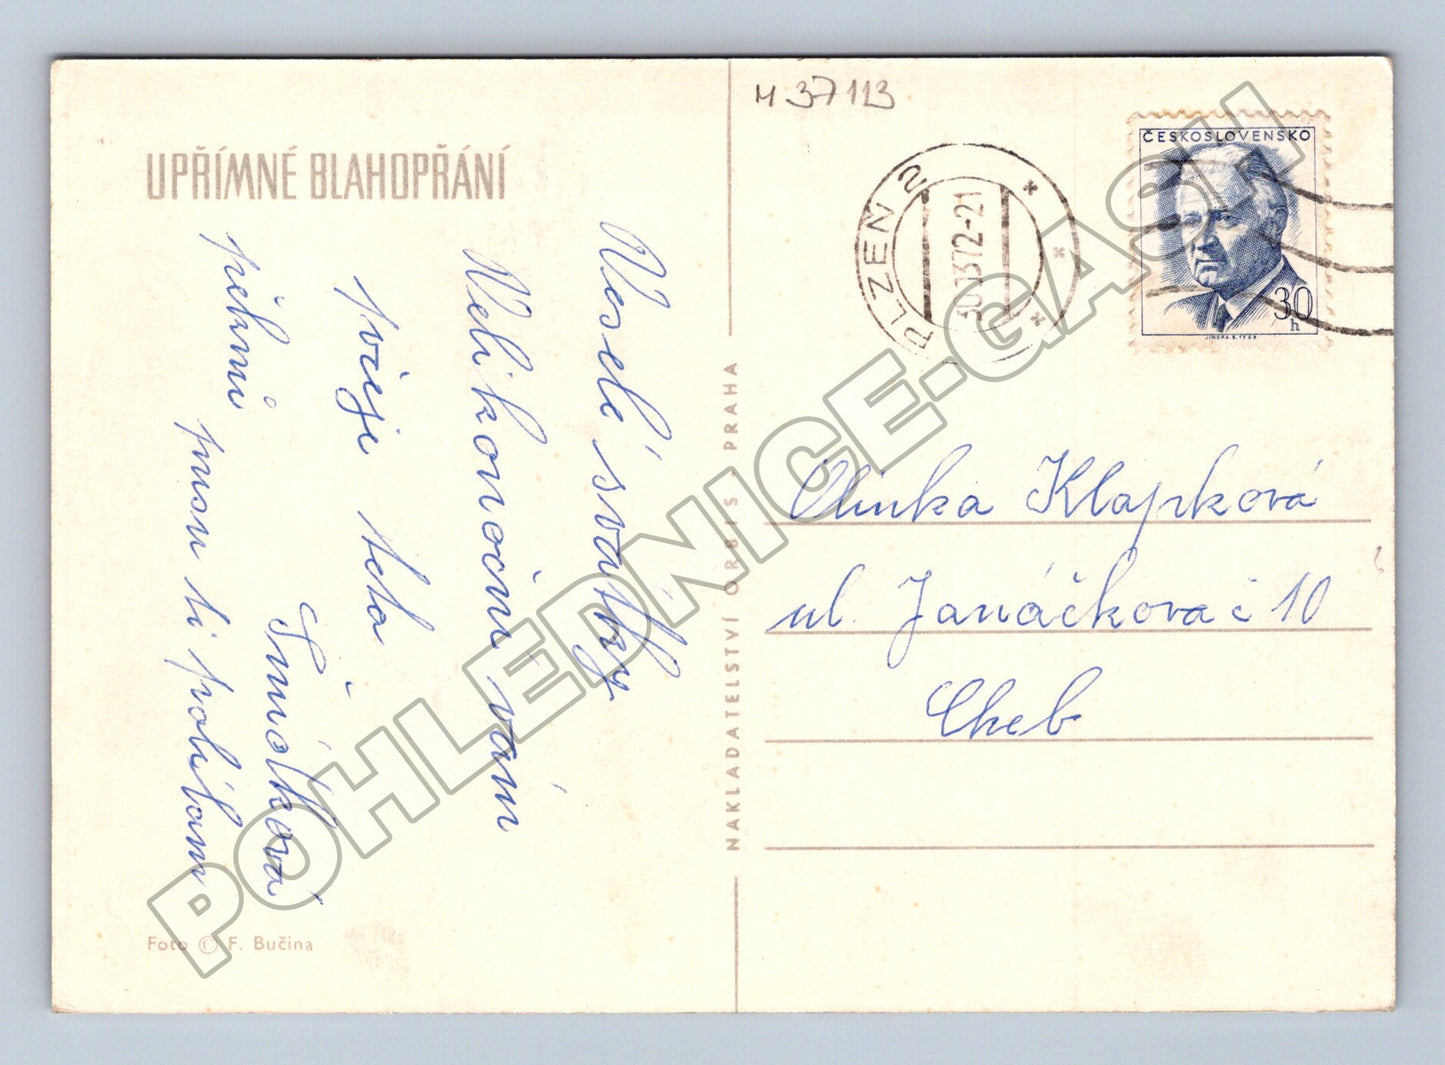 M 37113
UPŘÍMNÉ BLAHOPŘÁNÍ
Veselé svátky
Velikonoční vám
přeje teta
Šmídlová
pěkně
pusu ti posílám
Foto © F. Bučina
NAKLADATELSTVÍ ORBIS - PRAHA
PLZEŇ 2
30.3.72-21
ČESKOSLOVENSKO
30
h
JINDRA S. 1968
Olinka Klapková
ul. Janáčkova č 10
Cheb
POHLEDNICE-GAS9U